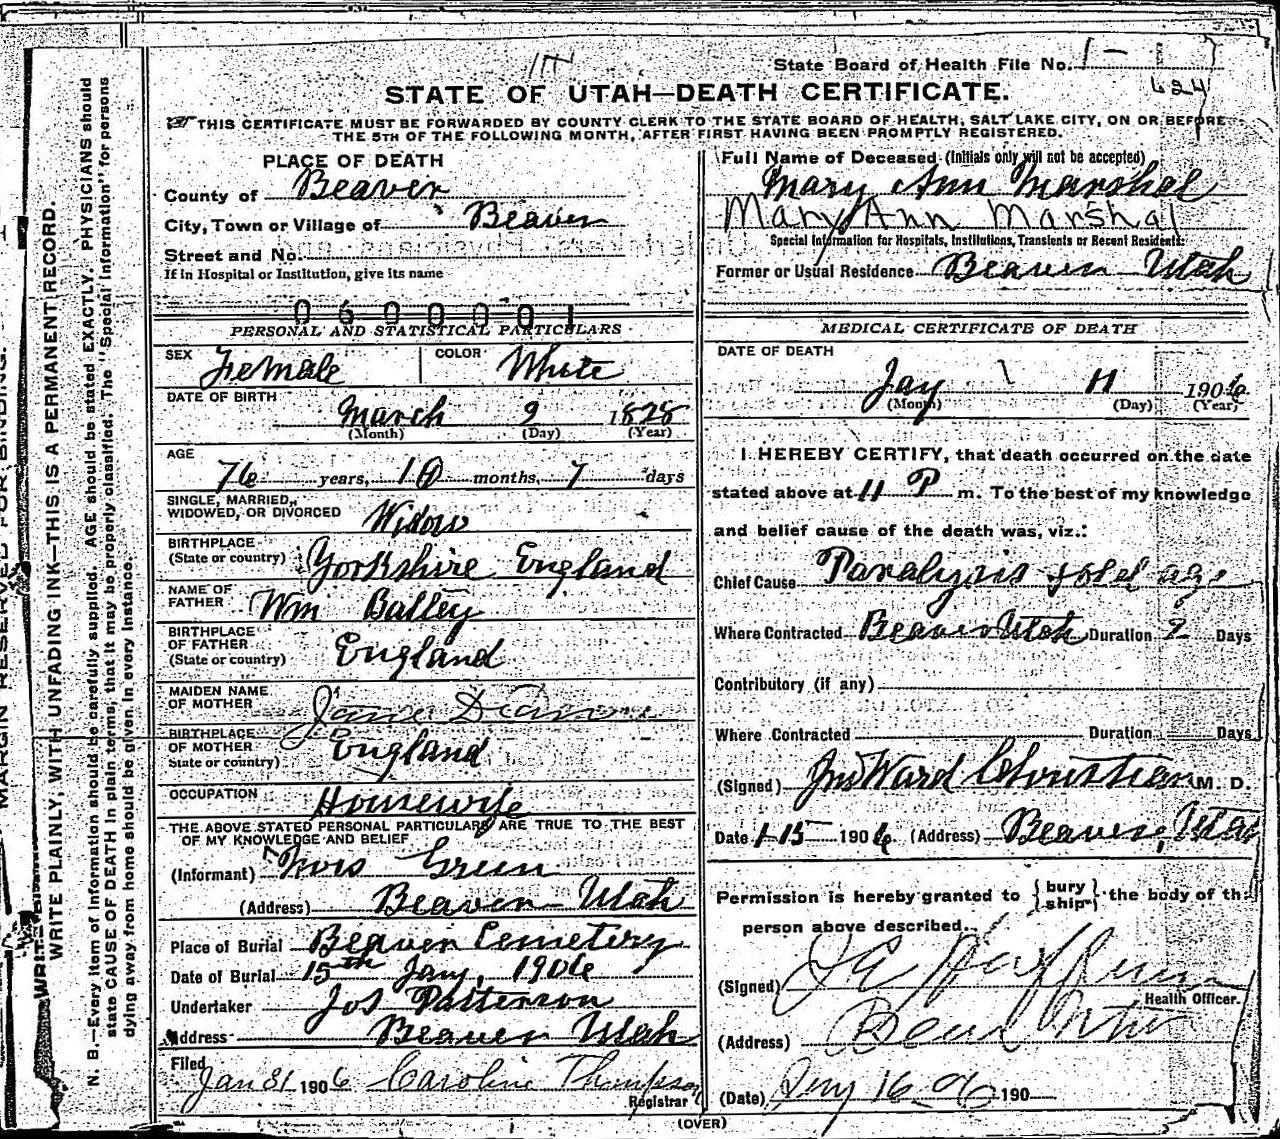 State Board of Health File No. 1 -
624
STATE OF UTAH—DEATH CERTIFICATE.
THIS CERTIFICATE MUST BE FORWARDED BY COUNTY CLERK TO THE STATE BOARD OF HEALTH, SALT LAKE CITY, ON OR BEFORE
THE 5TH OF THE FOLLOWING MONTH, AFTER FIRST HAVING BEEN PROMPTLY REGISTERED.
PLACE OF DEATH
County of Beaver
City, Town or Village of Beaver
Street and No.
If in Hospital or Institution, give its name
0600001
Full Name of Deceased (Initials only will not be accepted)
Mary Ann Marshal
Mary Ann Marshal
Special Information for Hospitals, Institutions, Transients or Recent Residents:
Former or Usual Residence Beaver Utah
PERSONAL AND STATISTICAL PARTICULARS
SEX Female COLOR White
DATE OF BIRTH
March 9 1828
(Month) (Day) (Year)
AGE
76 years, 10 months, 7 days
SINGLE, MARRIED,
WIDOWED, OR DIVORCED Widow
BIRTHPLACE
(State or country) Yorkshire England
NAME OF
FATHER Wm Batley
BIRTHPLACE
OF FATHER
(State or country) England
MAIDEN NAME
OF MOTHER Jane
BIRTHPLACE
OF MOTHER
State or country) England
OCCUPATION Housewife
THE ABOVE STATED PERSONAL PARTICULARS ARE TRUE TO THE BEST
OF MY KNOWLEDGE AND BELIEF
(Informant) Green
(Address) Beaver Utah
Place of Burial Beaver Cemetery
Date of Burial 15th Jany, 1906
Undertaker Jos Patterson
Address Beaver Utah
Filed
Jan 31 1906 Caroline Thompson
Registrar
MEDICAL CERTIFICATE OF DEATH
DATE OF DEATH
Jay 11 1906
(Month) (Day) (Year)
I HEREBY CERTIFY, that death occurred on the date
stated above at 11 P m. To the best of my knowledge
and belief cause of the death was, viz.:
Chief Cause Paralysis & old age
Where Contracted Beaver Utah Duration 2 Days
Contributory (if any)
Where Contracted Duration Days
(Signed) Jno Ward Christian M. D.
Date 1-15 1906. (Address) Beaver, Utah
Permission is hereby granted to {bury
ship} the body of the
person above described.
(Signed)
Health Officer.
(Address)
(Date) Jny 16 - 06 190
(OVER)
MARGIN RESERVED FOR BINDING.
WRITE PLAINLY, WITH UNFADING INK—THIS IS A PERMANENT RECORD.
N. B.—Every item of information should be carefully supplied. AGE should be stated EXACTLY. PHYSICIANS should
state CAUSE OF DEATH in plain terms, that it may be properly classified. The "Special Information" for persons
dying away from home should be given in every instance.